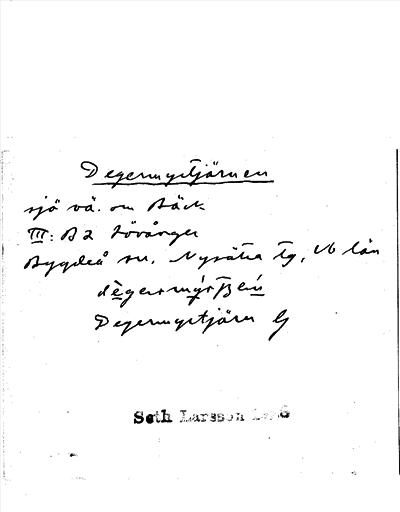 Degermyrtjärnen
sjö vä. om Bäck
III: B2 Lövånger
Bygdeå sn, Nysätra tg, Vb län
Degermyrtjärn
Seth Larsson